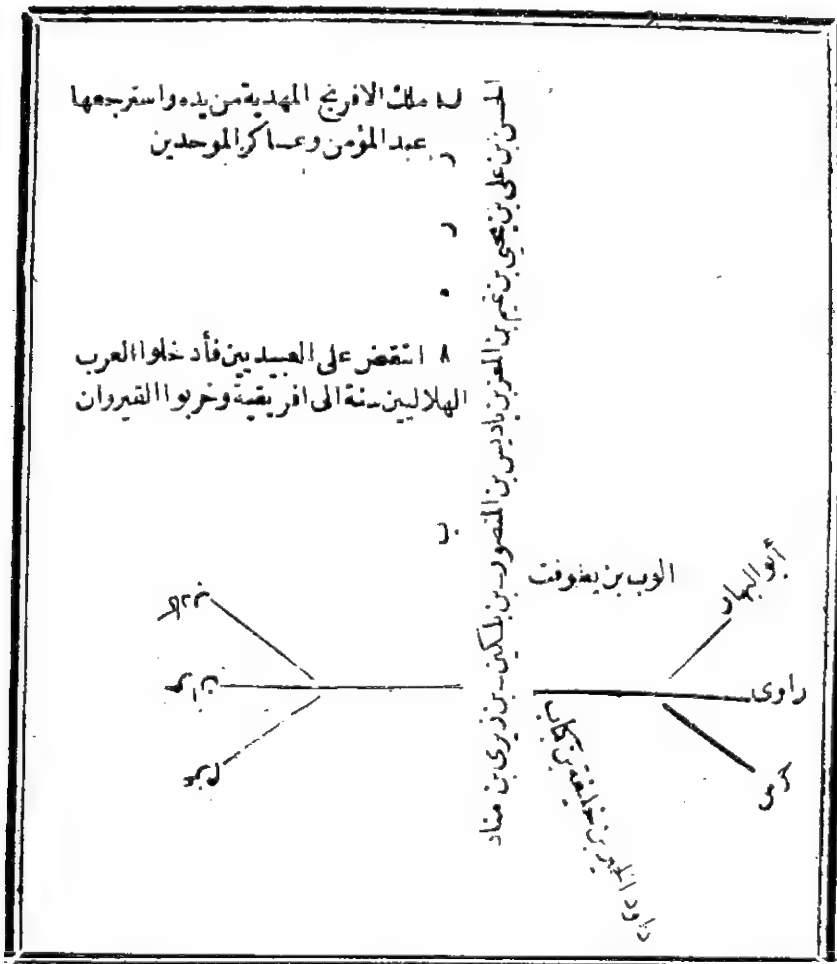 ملك الافرنج المهدية من يده واسترجعها
عبد المؤمن وعساكر الموحدين
٨ انتقض على العبيديين فأدخلوا العرب
الهلاليين سنة الى افريقية وخربوا القيروان
الحسن بن على بن يحيى بن تميم بن المعز بن باديس بن المنصور بن بلكين بن زيرى بن مناد
بن يطوفت
أبو البهار
راوى
داود الخير بن خليفة بن كباب